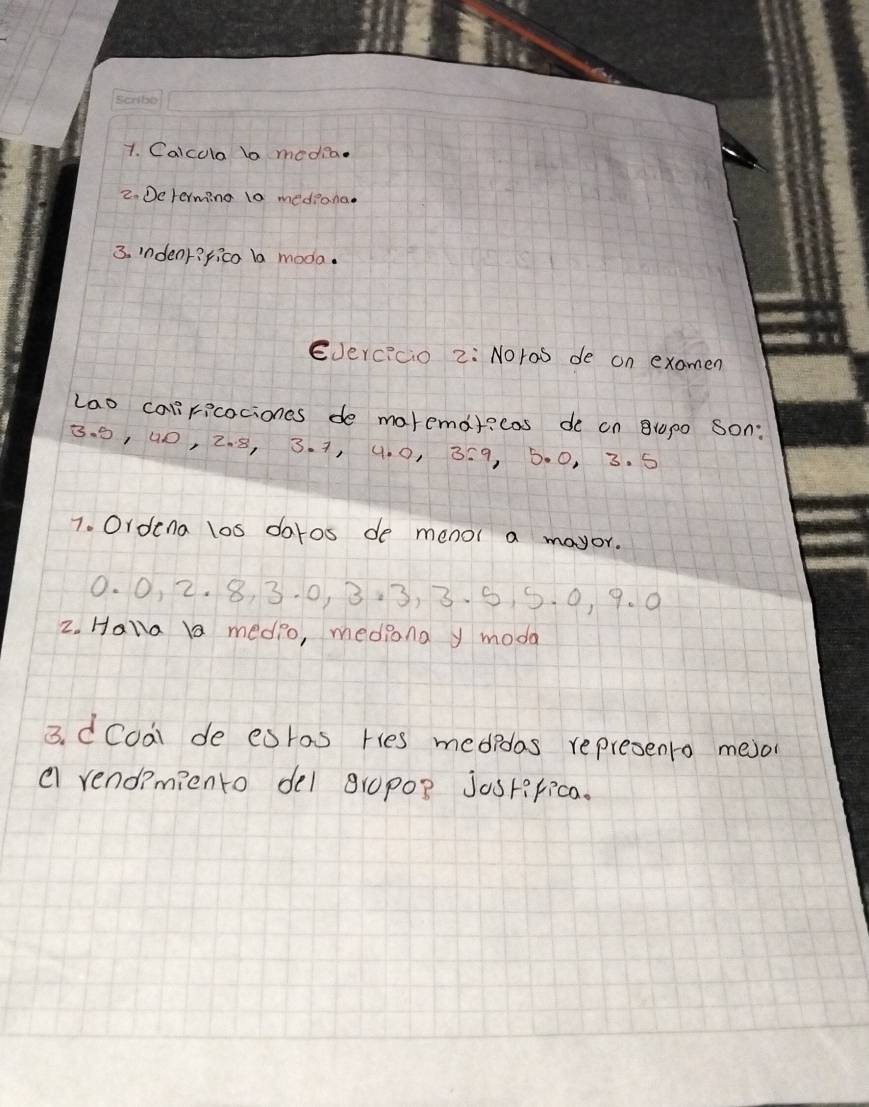 Scribe
1. Calcula la media.
2. Determina la mediana.
3. indentifica la moda.
Ejercicio 2: Notas de un examen
Las calificaciones de matemáticas de un grupo son:
3.5, 4.0, 2.8, 3.7, 4.0, 3.9, 5.0, 3.5
1. Ordena los datos de menor a mayor.
0.0, 2.8, 3.0, 3.3, 3.5, 5.0, 9.0
2. Halla la media, mediana y moda
3. ¿Cuál de estas tres medidas representa mejor
el rendimiento del grupo? Justifica.